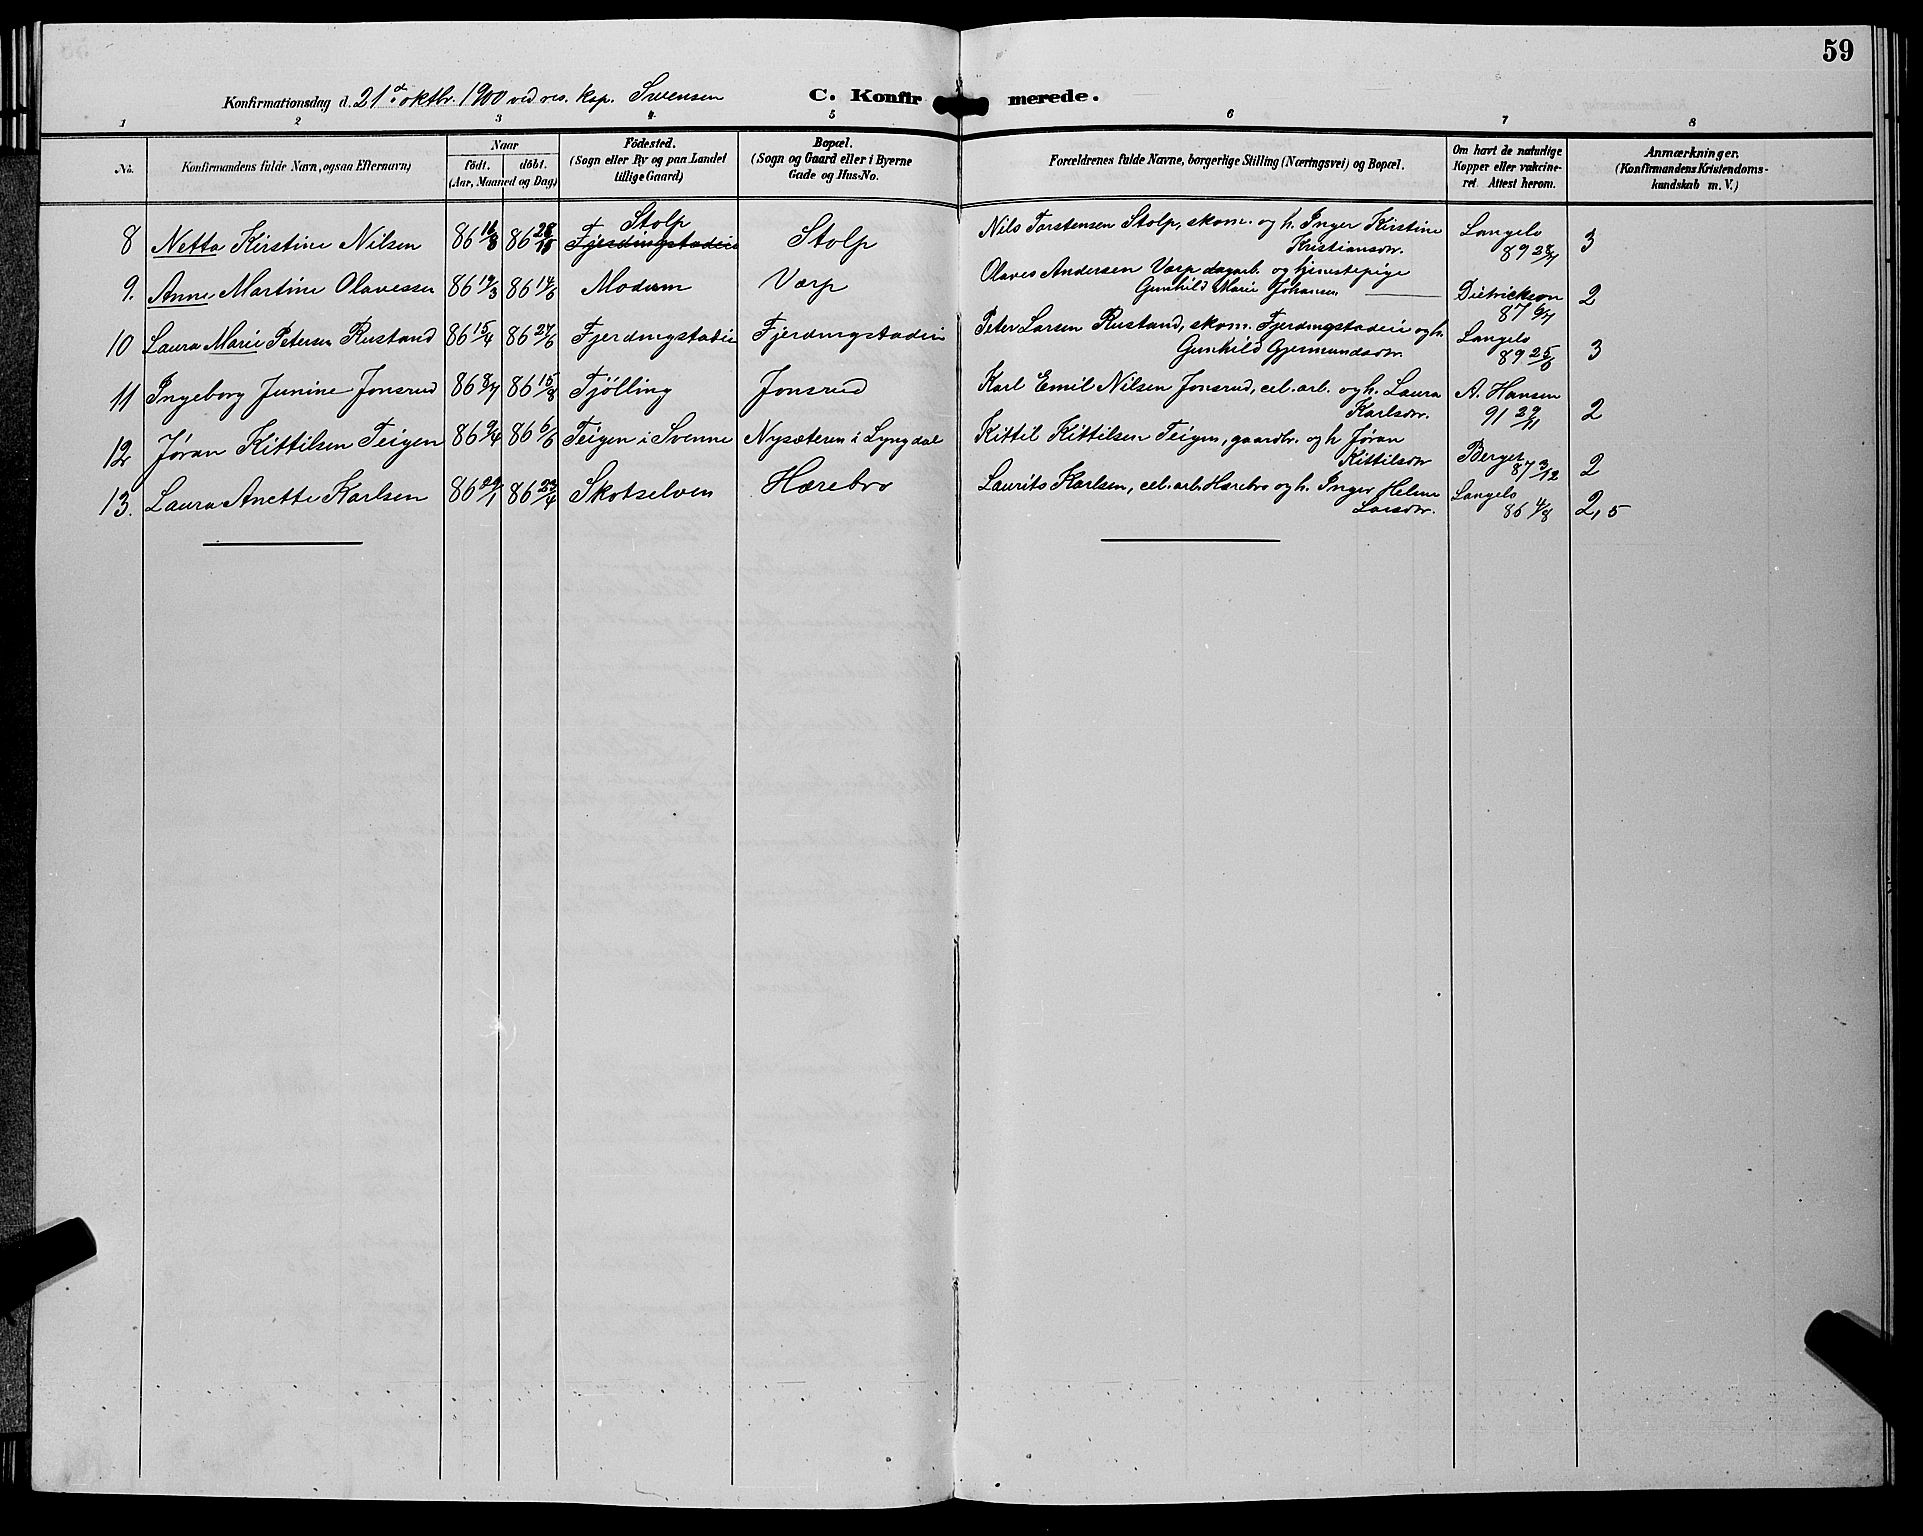 59
Konfirmationsdag d. 21de oktbr. 1900 ved res. kap. Svensen C. Konfirmerede.
1 2 3 4 5 6 7 8
No. Konfirmandens fulde Navn, ogsaa Efternavn) Naar födt. döbt. (Aar, Maaned og Dag) Födested. (Sogn eller By og paa Landet tillige Gaard) Bopæl. (Sogn og Gaard eller i Byerne Gade og Hus-No. Forældrenes fulde Navne, borgerlige Stilling (Næringsvei) og Bopæl. Om havt de naturlige Kopper eller vakcineret. Attest herom. Anmærkninger. (Konfirmandens Kristendomskundskab m. V.)
8 Netta Kirstine Nilsen 86 16/8 86 28/11 Stolp Fjerdingstadeie Stolp Nils Torstensen Stolp, skom. og h. Inger Kirstine Kristiansdr. Langelo 89 28/7 3
9. Anne Martine Olavessen 86 19/3 86 14/6 Modum Varp Olaves Andersen Varp dagarb. og tjenestepige Gunhild Marie Johansen Dietrickson 87 9/7 2
10 Laura Marie Petersen Rustand 86 15/4 86 27/6 Fjerdingstadeie Fjerdingstadeie Peter Larsen Rustand, skom. Fjerdingstadeie og h. Gunhild Gjermundsdr. Langelo 89 25/6 3
11 Ingeborg Junine Jonsrud 86 8/7 86 15/8 Tjølling Jonsrud Karl Emil Nilsen Jonsrud, cel. arb. og h. Laura Karlsdr. A. Hansen 91 29/11 2
12 Jøran Kittilsen Teigen 86 9/4 86 6/6 Teigen i Svenne Nysæteren i Lyngdal Kittil Kittilsen Teigen, gaardbr. og h Jøran Kittilsdr Berget 87 3/12 2
13. Laura Anette Karlsen 86 29/1 86 23/4 Skotselven Hærebro Laurits Karlsen, cel. arb. Hærebro og h. Inger Helene Larsdr. Langelo 86 4/8 2,5